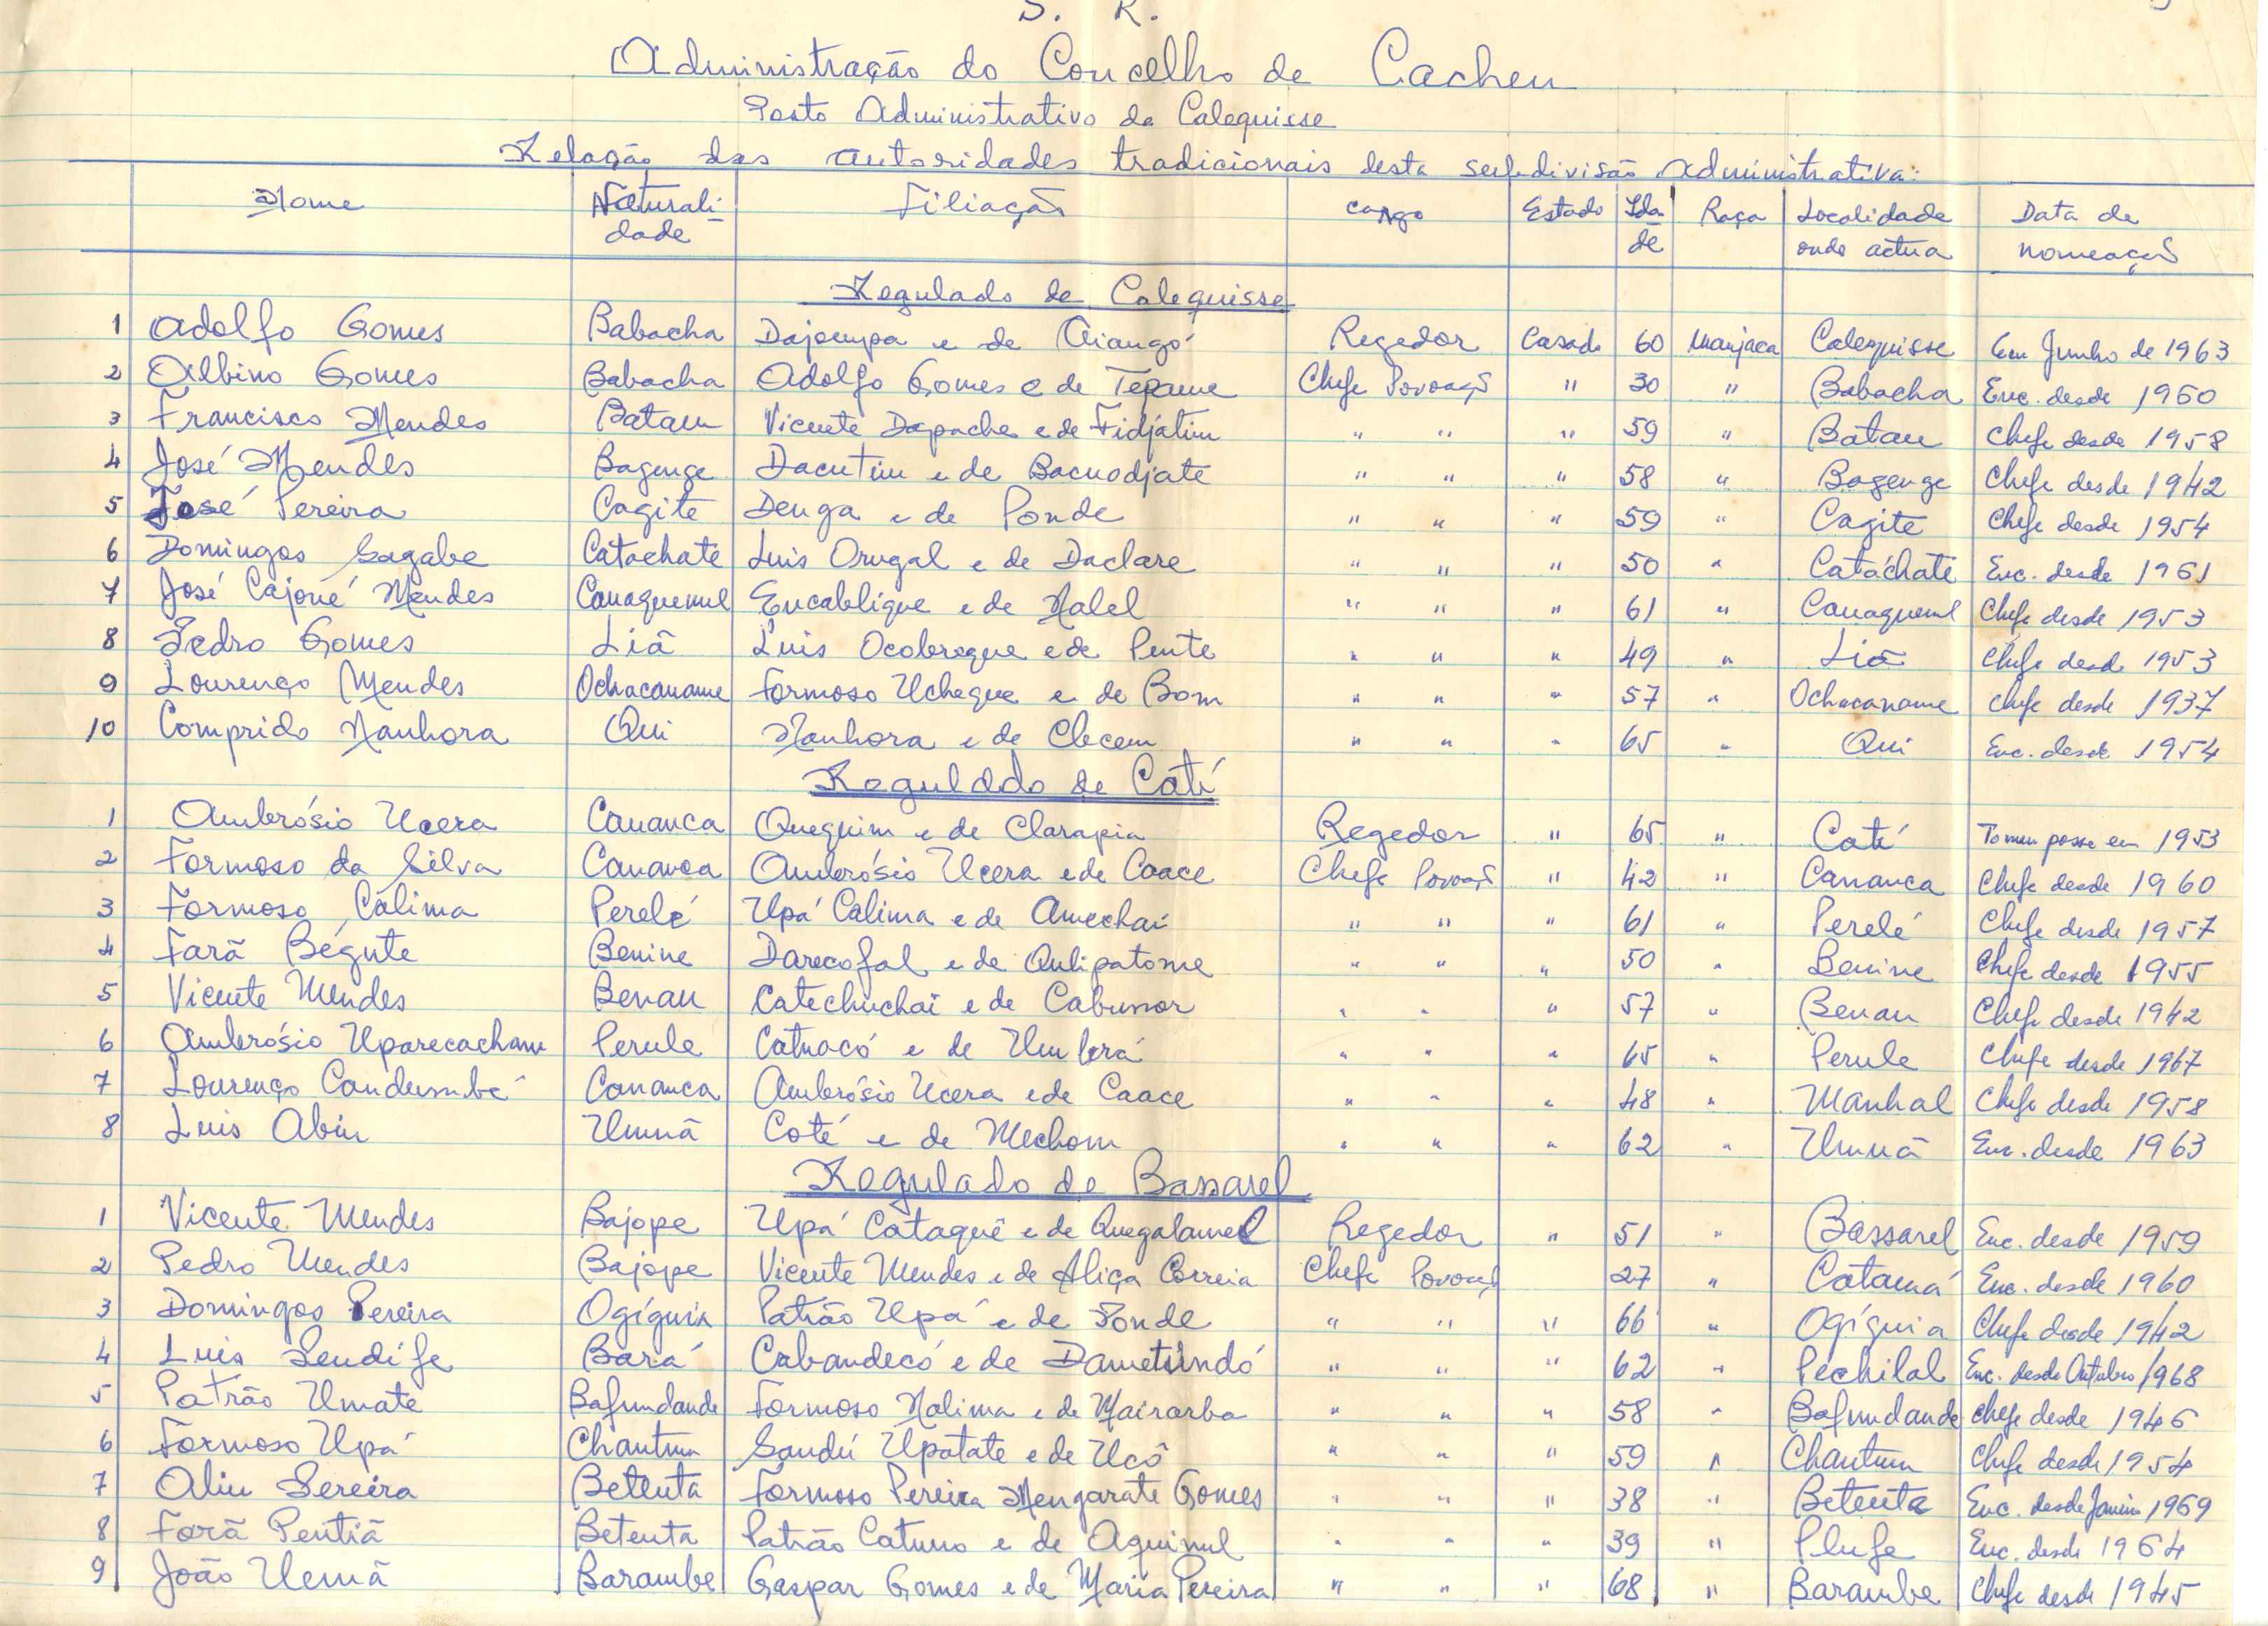 S. R.
Administração do Concelho de Cacheu
Posto Administrativo de Calequisse
Relação das autoridades tradicionais desta subdivisão administrativa:
Nome Naturali- Filiação cargo Estado Ida- Raça Localidade Data de
dade de onde actua nomeação
Regulado de Calequisse
1 Adolfo Gomes Babacha Dajoumpa e de Aiangó Regedor Casado 60 Manjaca Calequisse Em Junho de 1963
2 Albino Gomes Babacha Adolfo Gomes e de Tepame Chefe Povoaçã " 30 " Babacha Enc. desde 1960
3 Francisco Mendes Batau Vicente Dapache e de Fidjatim " " " 59 " Batau Chefe desde 1958
4 José Mendes Bagenge Dacutim e de Bacuodjate " " " 58 " Bagenge Chefe desde 1942
5 José Pereira Cagite Denga e de Ponde " " " 59 " Cagite Chefe desde 1954
6 Domingos Gagabe Catachate Luis Orugal e de Daclare " " " 50 " Catáchate Enc. desde 1961
7 José Cajoué Mendes Canaquemul Encablique e de Nalel " " " 61 " Canaquemul Chefe desde 1953
8 Pedro Gomes Liã Luis Ocobregue e de Pente " " " 49 " Liã Chefe desde 1953
9 Lourenço Mendes Ochacaname Formoso Ucheque e de Bom " " " 57 " Ochacaname Chefe desde 1937
10 Comprido Nanhora Qui Nanhora e de Clecem " " " 65 " Qui Enc. desde 1954
Regulado de Catí
1 Ambrósio Ucera Cananca Quequim e de Clarapia Regedor " 65 " Catí Tomou posse em 1953
2 Formoso da Silva Cananca Ambrósio Ucera e de Caace Chefe Povoaçã " 42 " Cananca Chefe desde 1960
3 Formoso Calima Perelé Upá Calima e de Amechai " " " 61 " Perelé Chefe desde 1957
4 Farã Bégute Benine Darecofal e de Qulipatome " " " 50 " Benine Chefe desde 1955
5 Vicente Mendes Benau Catechuchai e de Cabunsor " " " 57 " Benau Chefe desde 1942
6 Ambrósio Uparecacham Perule Catuacó e de Umbrá " " " 65 " Perule Chefe desde 1967
7 Lourenço Candumbé Cananca Ambrósio Ucera e de Caace " " " 48 " Manhal Chefe desde 1958
8 Luis Abiu Umuã Coté e de Mechom " " " 62 " Umuã Enc. desde 1963
Regulado de Bassarel
1 Vicente Mendes Bajope Upá Cataquê e de Quegalamel Regedor " 51 " Bassarel Enc. desde 1959
2 Pedro Mendes Bajope Vicente Mendes e de Aliça Correia Chefe Povoaçã 27 " Catamá Enc. desde 1960
3 Domingos Pereira Ogíguia Patrão Upá e de Ponde " " " 66 " Ogíguia Chefe desde 1942
4 Luis Sendife Bará Cabandecó e de Dametundó " " " 62 " Pechilal Enc. desde Outubro/1968
5 Patrão Umate Bafundande Formoso Nalima e de Nairarba " " " 58 " Bafundande Chefe desde 1946
6 Formoso Upá Chantum Sandú Upatate e de Ucô " " " 59 " Chantum Chefe desde 1954
7 Aliu Pereira Betenta Formoso Pereira Mengarate Gomes " " " 38 " Betenta Enc. desde Janeiro 1969
8 Farã Pentiã Betenta Patrão Catumo e de Aquimul " " " 39 " Plufe Enc. desde 1964
9 João Uemã Barambe Gaspar Gomes e de Maria Pereira " " " 68 " Barambe Chefe desde 1945